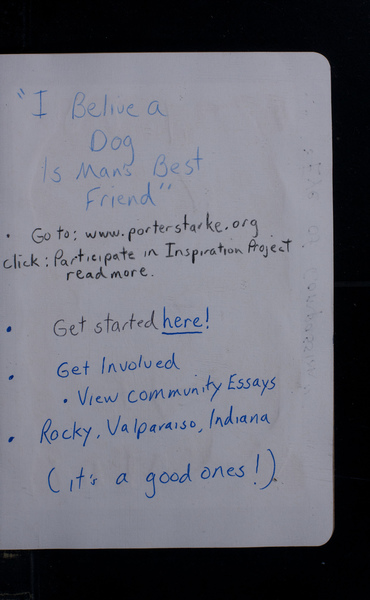 "I Belive a
Dog
Is Mans Best
Friend"
• Go to: www.porterstarke.org
click: Participate in Inspiration Project
read more.
• Get started here!
• Get Involved
• View community Essays
• Rocky, Valparaiso, Indiana
(it's a good ones!).